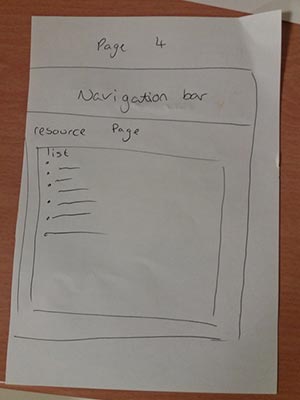 Page 4
Navigation bar
resource Page
list